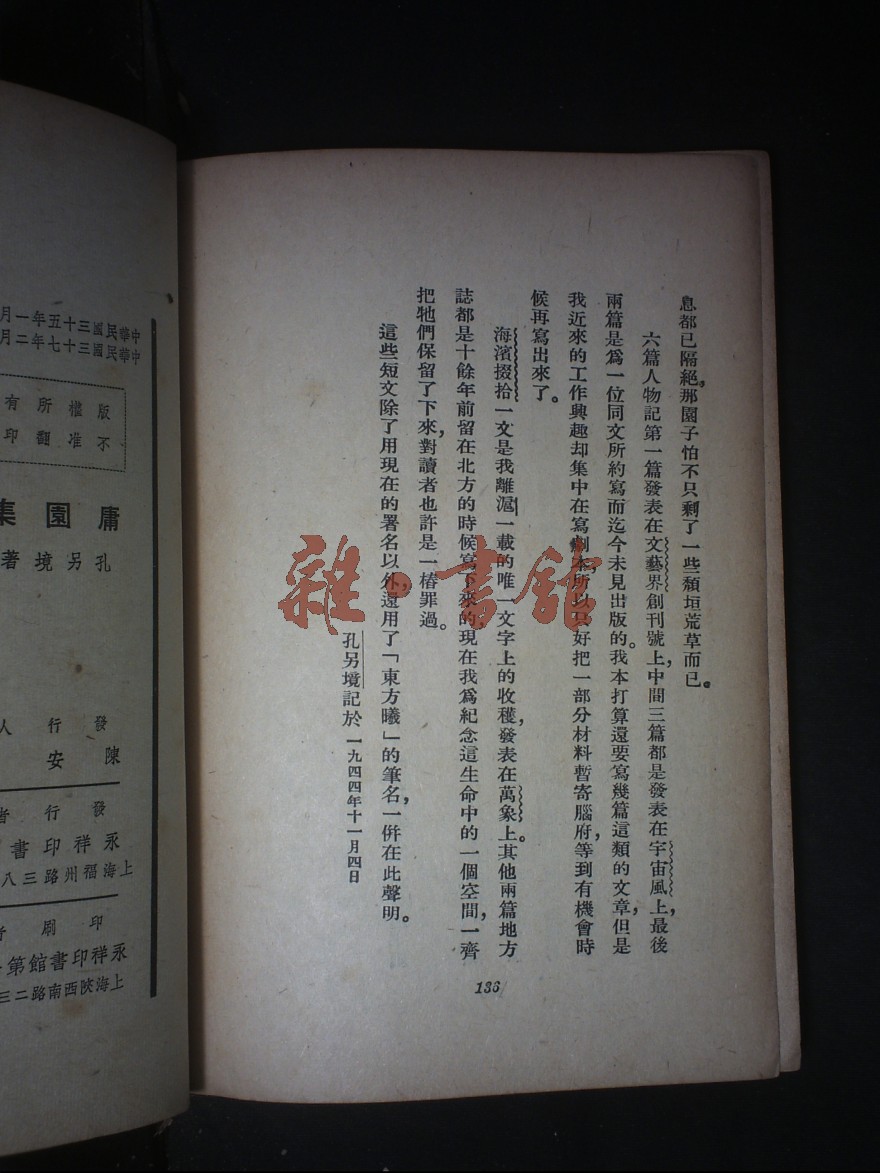 息都已隔絕，那園子怕不只剩了一些頹垣荒草而已。
六篇人物記第一篇發表在文藝界創刊號上，中間三篇都是發表在宇宙風上，最後
兩篇是為一位同文所約寫而迄今未見出版的。我本打算還要寫幾篇這類的文章，但是
我近來的工作興趣却集中在寫劇本，所以只好把一部分材料暫寄腦府，等到有機會時
候再寫出來了。
海濱掇拾一文是我離滬一載的唯一文字上的收穫，發表在萬象上。其他兩篇地方
誌都是十餘年前留在北方的時候寫下來的，現在我為紀念這生命中的一個空間，一齊
把牠們保留了下來，對讀者也許是一樁罪過。
這些短文除了用現在的署名以外，還用了「東方曦」的筆名，一併在此聲明。
孔另境記於一九四四年十一月四日
136
雜·書館
中華民國三十五年一月
中華民國三十七年二月
版權所有
不准翻印
庸園集
孔另境著
發行人
陳安
發行者
永祥印書
上海福州路三八
印刷者
永祥印書館第
上海陝西南路二三